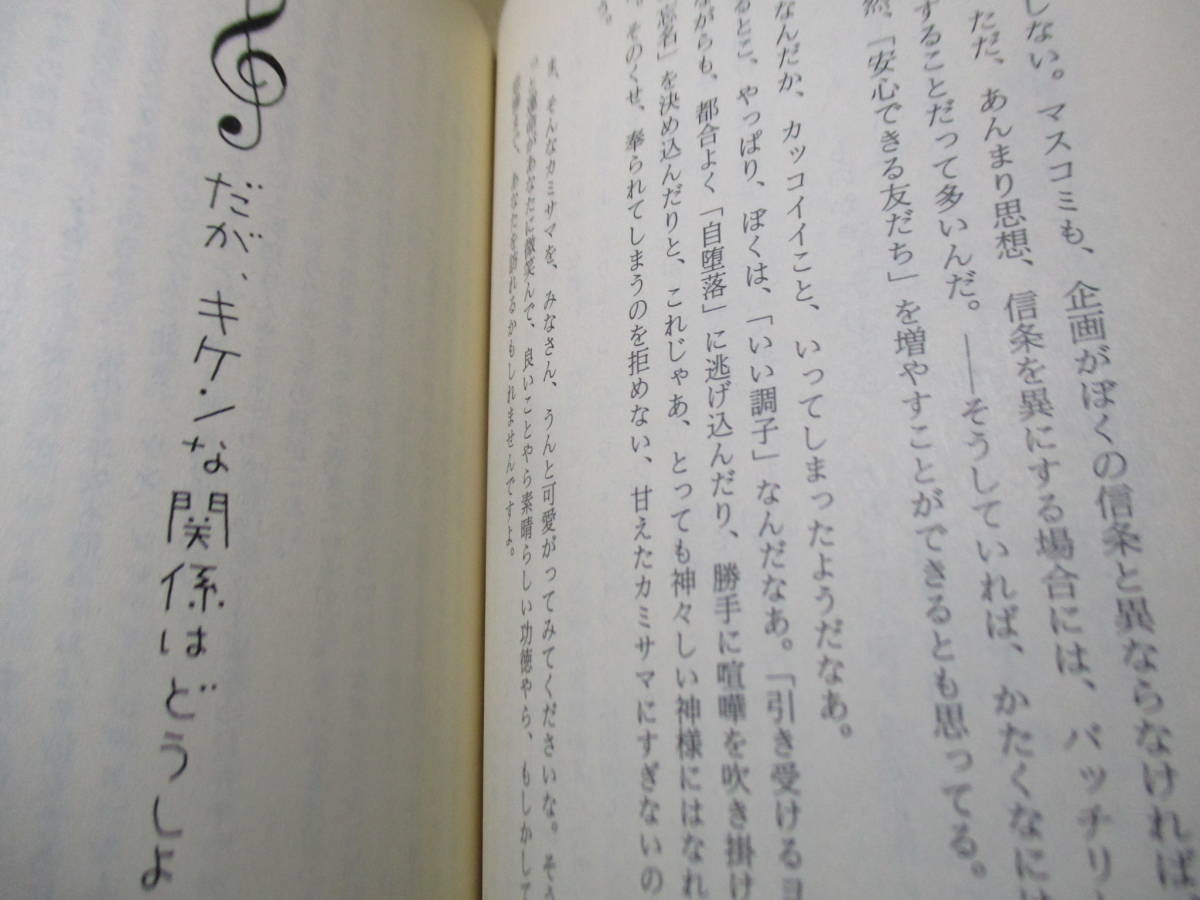 しない。マスコミも、企画がぼくの信条と異ならなければ、
ただ、あんまり思想、信条を異にする場合には、バッチリ
することだって多いんだ。――そうしていれば、かたくなには
「安心できる友だち」を増やすことができるとも思ってる。
なんだか、カッコイイこと、いってしまったようだなあ。
るとこ、やっぱり、ぼくは、「いい調子」なんだなあ。「引き受けるヨ
ながらも、都合よく「自堕落」に逃げ込んだり、勝手に喧嘩を吹き掛け
忘名」を決め込んだりと、これじゃあ、とっても神々しい神様にはなれ
そのくせ、奉られてしまうのを拒めない、甘えたカミサマにすぎないの
う。
ま、そんなカミサマを、みなさん、うんと可愛がってみてくださいな。そう
があなたに微笑んで、良いことやら素晴らしい功徳やら、もしかして
あなたを訪れるかもしれませんですよ。
だが、キケンな関係はどうしよ